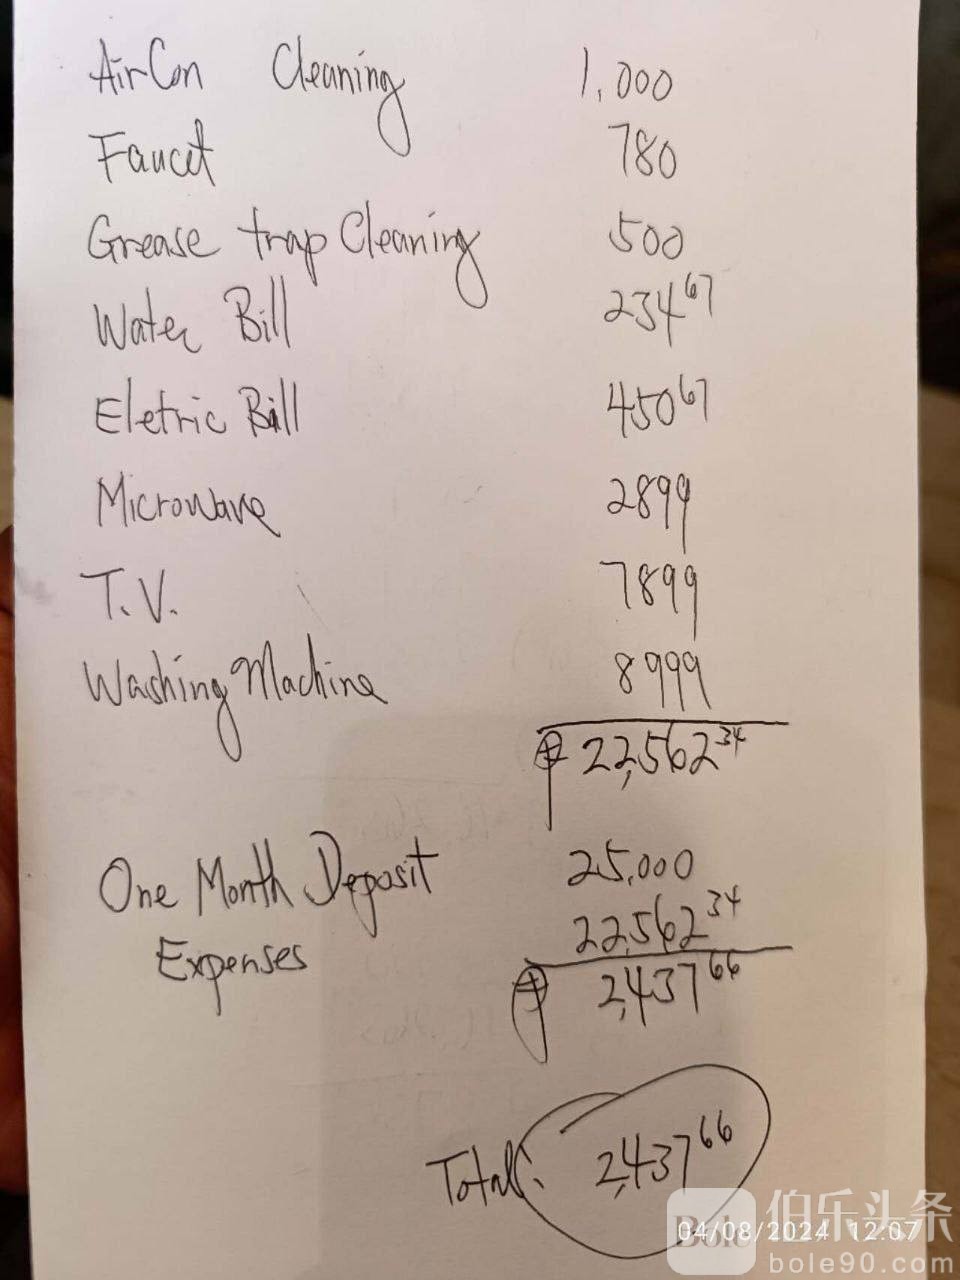 AirCon Cleaning 1,000
Faucet 780
Grease trap Cleaning 500
Water Bill 234 67
Eletric Bill 450 67
Microwave 2899
T.V. 7899
Washing Machine 8999
₱ 22,562 34
One Month Deposit 25,000
Expenses 22,562 34
₱ 2,437 66
Total: 2,437 66
04/08/2024 12:07
Bole 伯乐头条
bole90.com